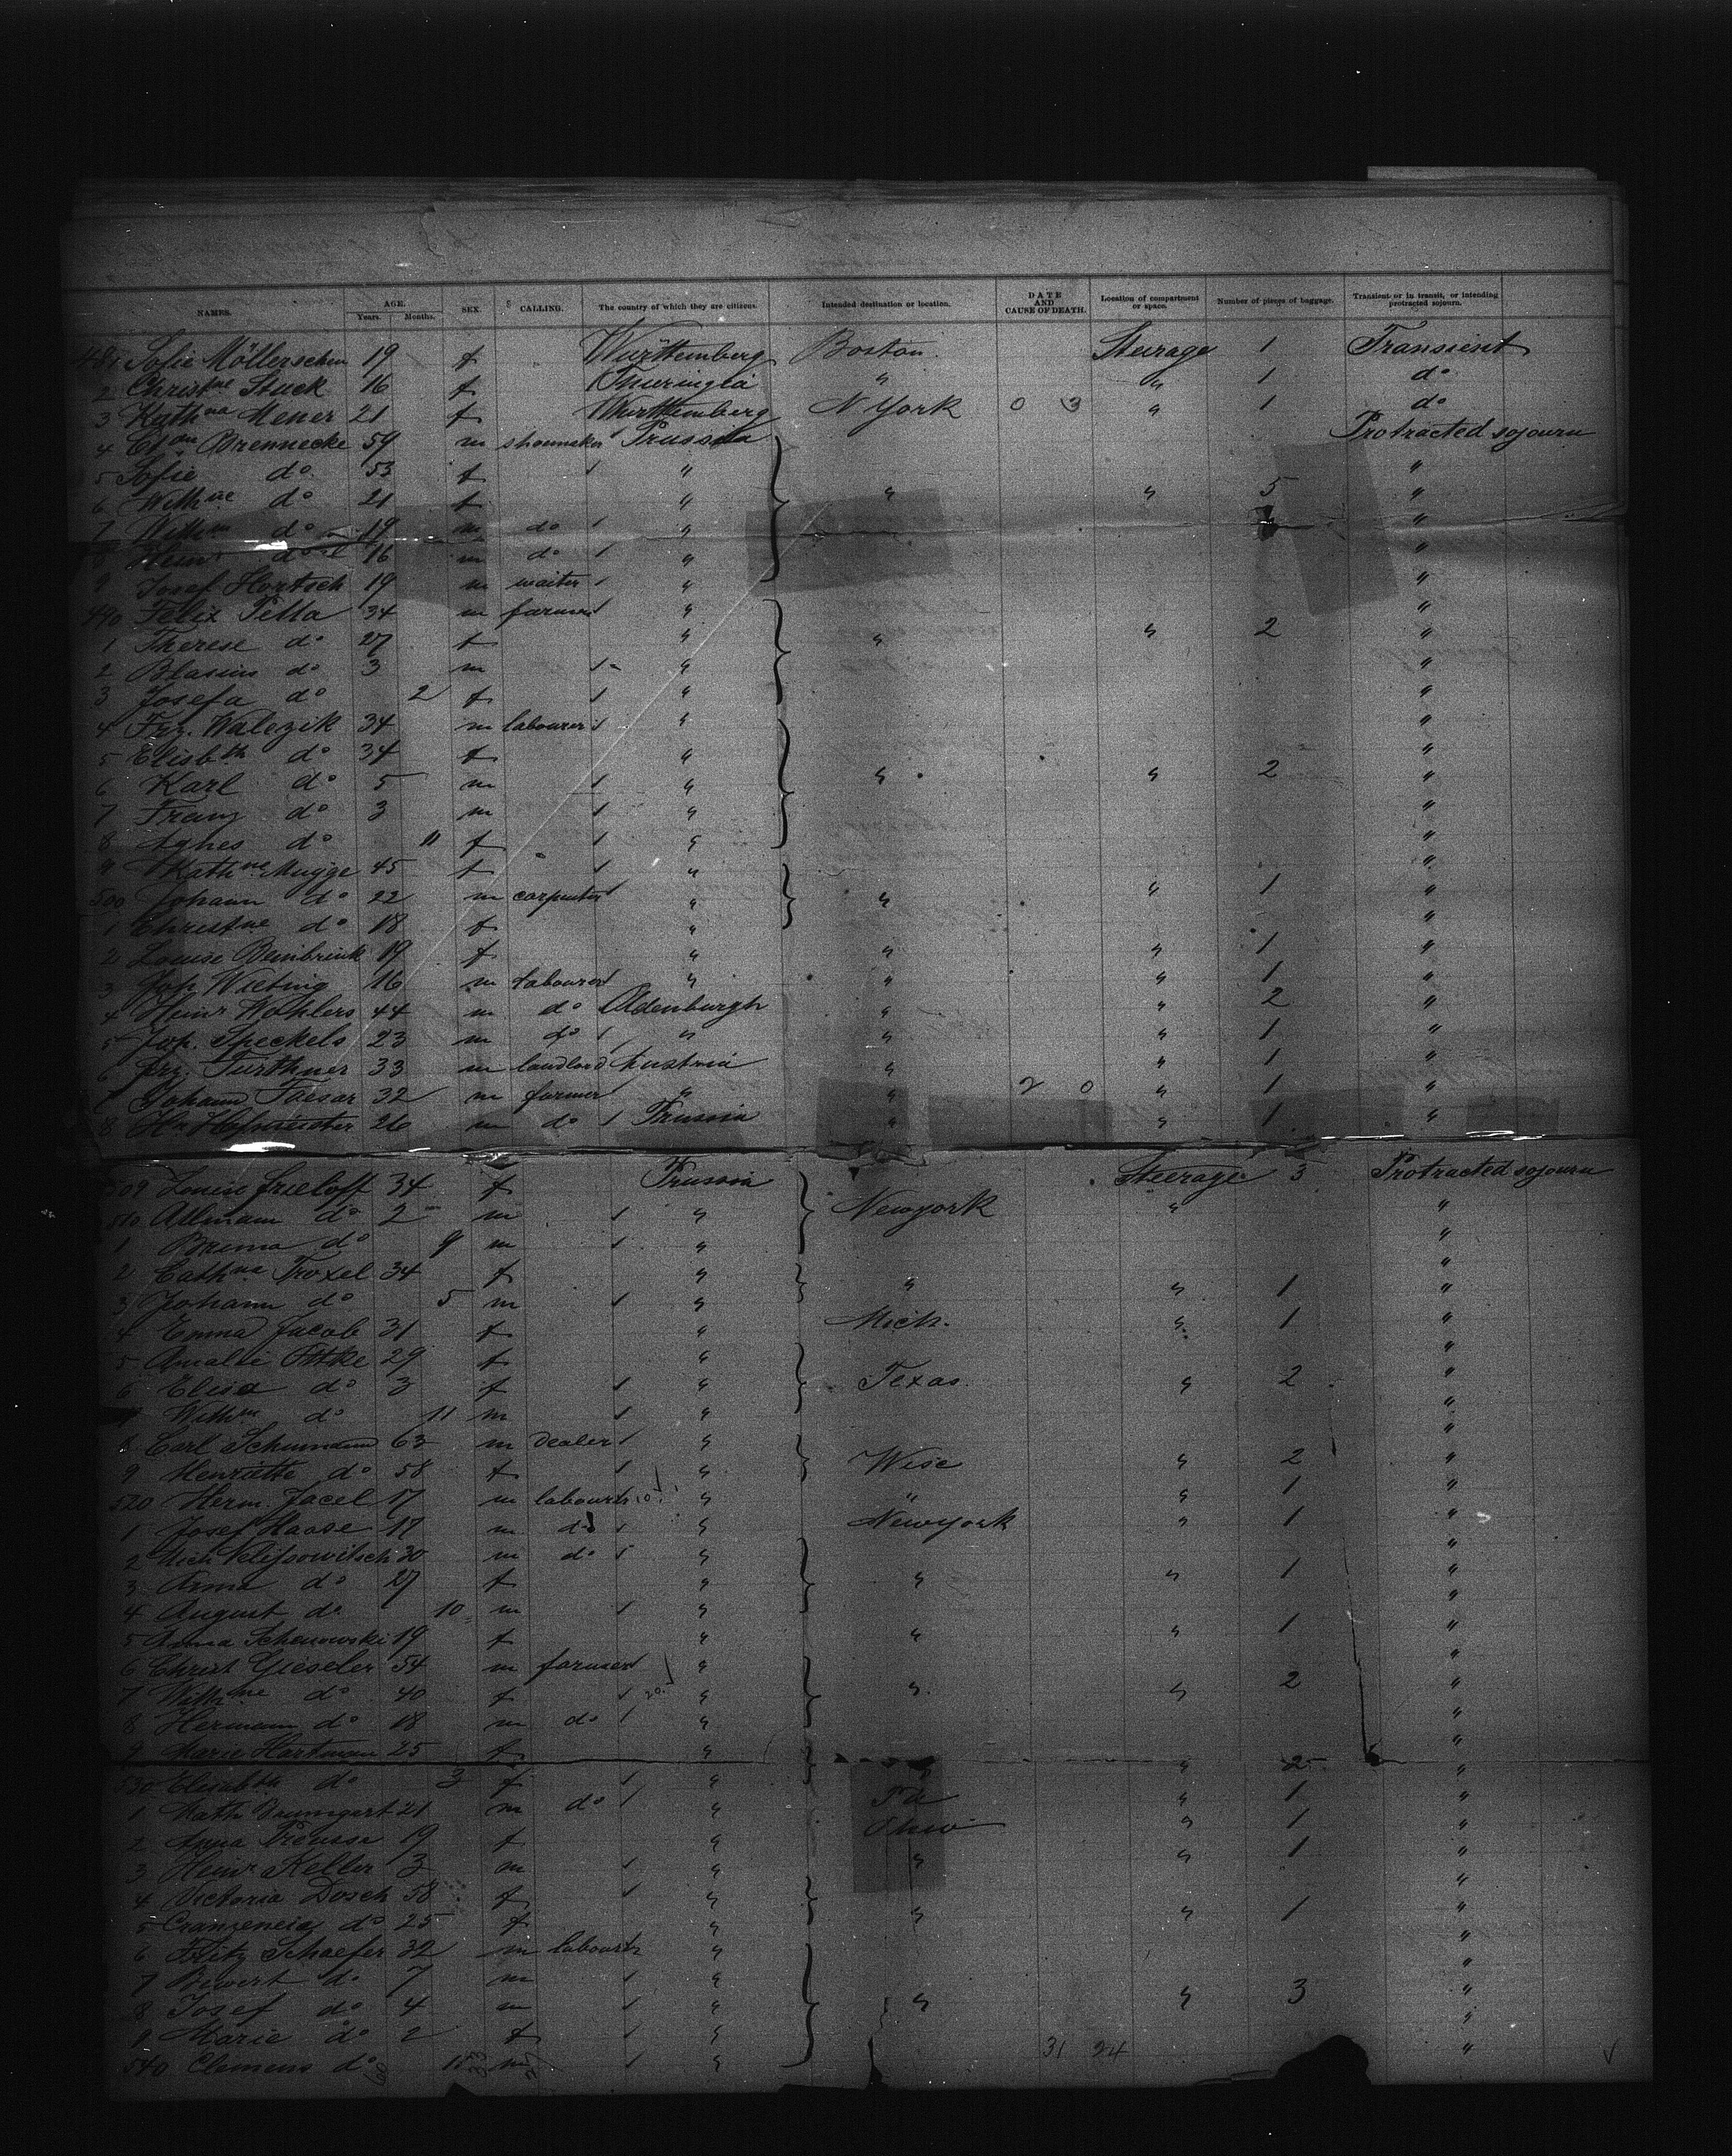 NAMES. AGE. Years. Months. SEX. CALLING. The country of which they are citizens. Intended destination or location. DATE AND CAUSE OF DEATH. Location of compartment or space. Number of pieces of baggage. Transient or in transit, or intending protracted sojourn.
481 Sofie Möllerschen 19 f Württemberg Boston Steerage 1 Transient
2 Christne Stuck 16 f Thuringia " " 1 do
3 Kathna Mener 21 f Württemberg N York 0 3 " 1 do
4 Brennecke 59 m shoemaker Prussia Protracted sojourn
5 Sofie do 53 f " "
6 Wilhne do 21 f " " " 5 "
7 Wilhm do 19 m do " "
8 Heinr do 16 m do " "
9 Josef Hortsch 19 m waiter " "
490 Felix Pella 34 m farmer " "
1 Therese do 27 f " " " 2 "
2 Blasius do 3 m " "
3 Josefa do 2 f " "
4 Frz. Walezik 34 m labourer " "
5 Elisbth do 34 f " "
6 Karl do 5 m " " " 2 "
7 Franz do 3 m " "
8 Agnes do 11 f " "
9 Kathne Mugge 45 f " "
500 Johann do 22 m carpenter " " " 1 "
1 Christne do 18 f " "
2 Louise Beinbrink 19 f " " " 1 "
3 Joh Wieting 16 m labourer " " " 1 "
4 Heinr Wohlers 44 m do Oldenburgh " " 2 "
5 Joh. Speckels 23 m do " " " 1 "
6 Frz. Furthner 33 m landlord Austria " " 1 "
7 Johann Faesar 32 m farmer " " 2 0 " 1 "
8 Hn Hofmeister 26 m do Prussia " " 1 "
509 Louise Frieloff 34 f Prussia Steerage 3 Protracted sojourn
510 Allmam do 2 m " Newyork " "
1 Brema do 9 m " "
2 Cathna Troxel 34 f " "
3 Johann do 5 m " " " 1 "
4 Emma Jacob 31 f " Mich. " 1 "
5 Amalie 29 f " "
6 Elisa do 3 f " Texas " 2 "
7 Wilhm do 11 m " "
8 Carl Schumann 63 m dealer " "
9 Henriette do 58 f " Wisc " 2 "
520 Herm. Jacel 17 m labourer " " " 1 "
1 Josef Haase 17 m do " Newyork " 1 "
2 Mich 30 m do " "
3 Anna do 27 f " " " 1 "
4 August do 10 m " "
5 Anna Schenowski 19 f " " " 1 "
6 Christ Gieseler 54 m farmer " "
7 Wilhmne do 40 f 20 " " " 2 "
8 Hermann do 18 m do " "
9 Marie Hartman 25 f " " 2 "
530 Elisabth do 3 f " " "
1 Math Baumgart 21 m do " Pa " 1 "
2 Anna Preussa 19 f " Ohio " 1 "
3 Heinr Keller 3 m " " " 1 "
4 Victoria Dosch 58 f " "
5 do 25 f " " " 1 "
6 Fritz Schaefer 32 m labourer " "
7 Bewert do 7 m " "
8 Josef do 4 m " " " 3 "
9 Marie do 2 f " "
540 Clemens do m " 31 24 "